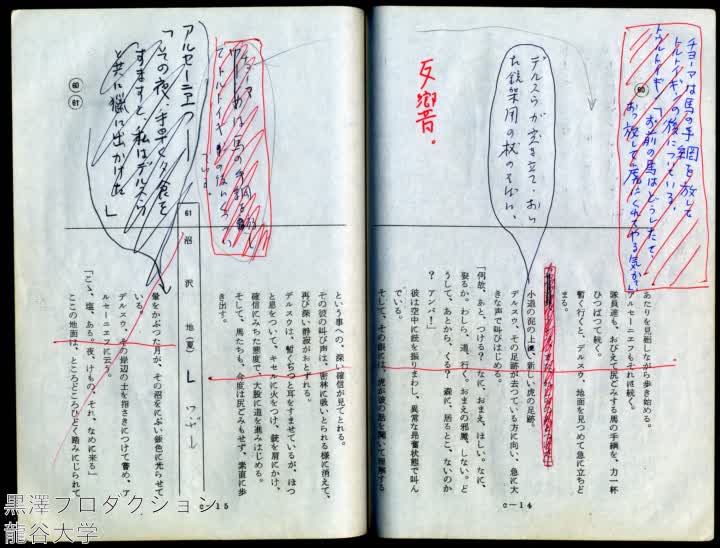 チョーアは馬の手綱を放して
トルトイギンの後についている。
トウルトイギン「お前の馬はどうしたて、
おっ放して虎にくれてやる気か?」
60
デルスウが突き立て、おい
た銃架用の杖のそばに、
反響音。
あたりを見廻しながら歩き始める。
アルセーニエフもそれに続く。
隊員達も、おびえて尻ごみする馬の手綱を、力一杯
ひっぱって続く。
暫く行くと、デルスウ、地面を見つめて急に立ちど
まる。
小道の泥の上に、新しい虎の足跡。
デルスウ、その足跡が去っている方に向い、急に大
きな声で叫びはじめる。
「何故、あと、つける? なに、おまえ、ほしい。なに、
要るか。わしら、道、行く。おまえの邪魔、しない。ど
うして、あとから、くる? 森に、居るとこ、ないのか
? アンバ!」
彼は空中に銃を振りまわし、異常な昂奮状態で叫ん
でいる。
そして、その眼には、虎が彼の話を聞いて理解する
c—14
60
61
アルセーニエフ
「その夜、手早く夕食を
すますと、私はデルスウ
と共に猟に出かけた」
という事への、深い確信が見てとれる。
その彼の叫び声は、密林に吸いとられる様に消えて、
再び深い静寂がおとずれる。
デルスウは、暫くぢっと耳をすませているが、ほっ
と息をついて、キセルに火をつけ、銃を肩にかけ、
確信にみちた態度で、大股に道を進みはじめる。
そして、馬たちも、今度は尻ごみもせず、素直に歩
き出す。
61 沼沢地(夏) L
暈をかぶった月が、その沼をにぶい銀色に光らせて
いる。
デルスウ、その岸辺の土を指さきにつけて嘗め、ア
ルセーニエフに云う。
「こゝ、塩、ある。夜、けもの、それ、なめに来る」
ここの地面は、ところどころひどく踏みにじられて
c—15
黒澤プロダクション
龍谷大学